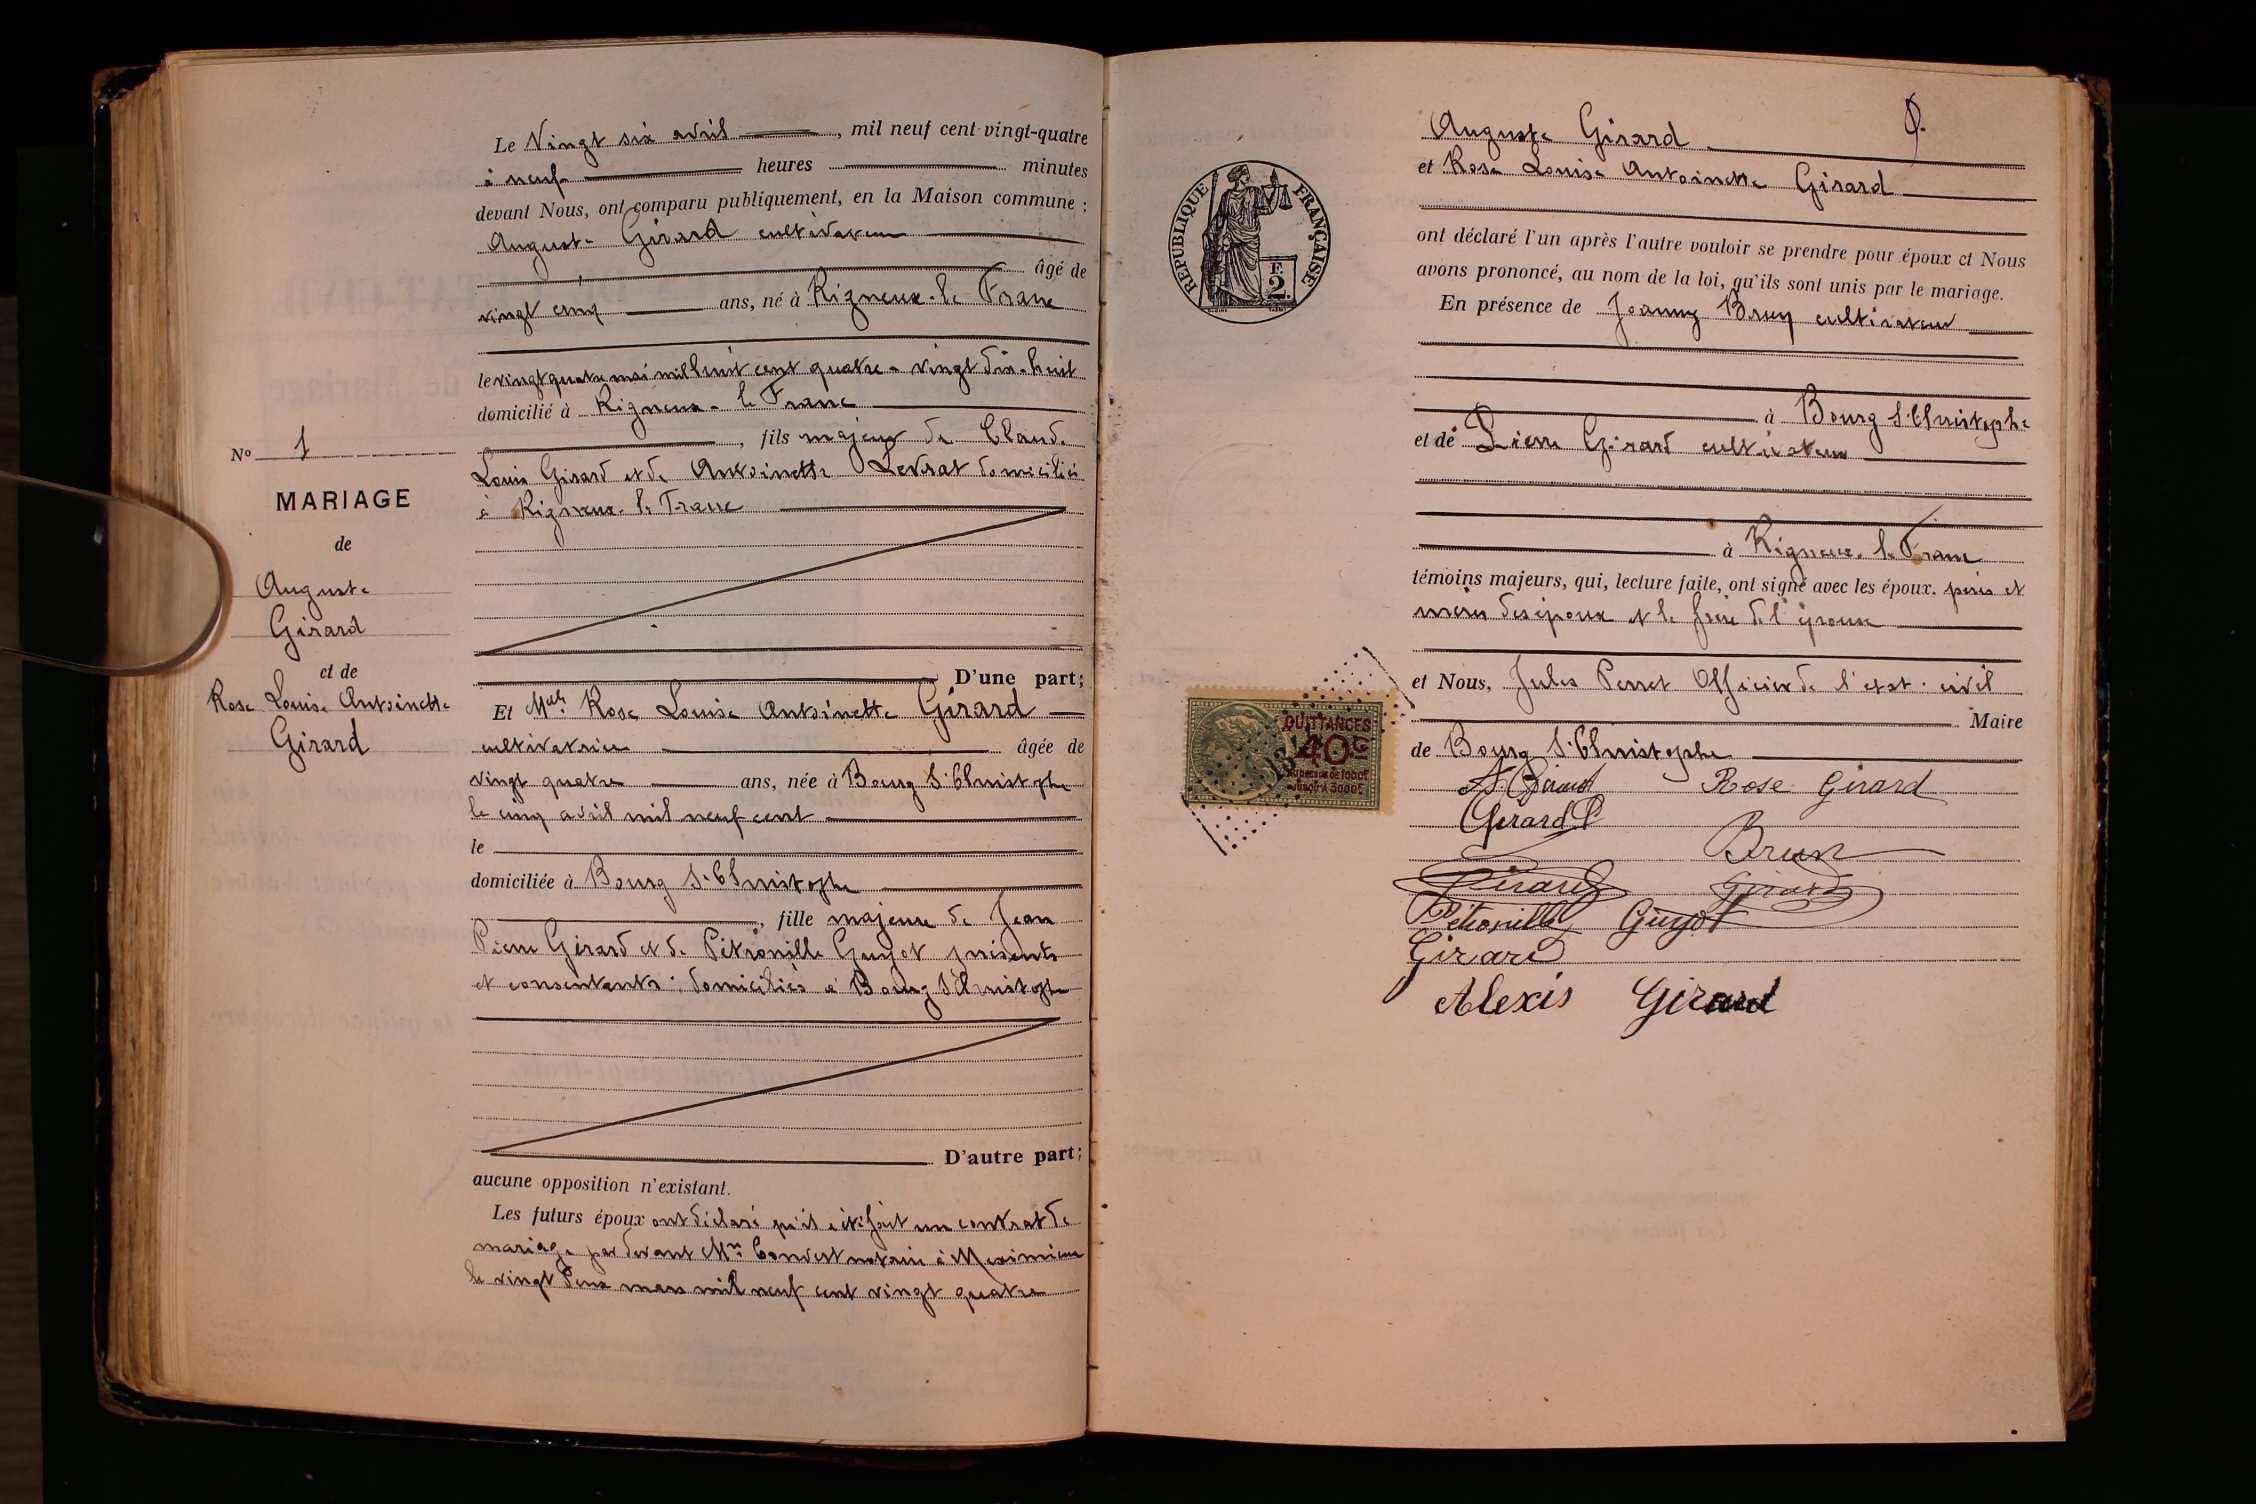 Le Vingt six avril, mil neuf cent vingt-quatre
à neuf heures minutes
devant Nous, ont comparu publiquement, en la Maison commune :
Auguste Girard cultivateur
âgé de
vingt cinq ans, né à Rigneux-le Franc
le vingt quatre mai mil huit cent quatre-vingt dix-huit
domicilié à Rigneux-le Franc
, fils majeur de Claude
Louis Girard et de Antoinette Levrat domiciliés
à Rigneux-le Franc
D'une part;
Et Melle Rose Louise Antoinette Girard
cultivatrice âgée de
vingt quatre ans, née à Bourg St Christophe
le cinq avril mil neuf cent
le
domiciliée à Bourg St Christophe
, fille majeure de Jean
Pierre Girard et de Pétronille Guyot présents
et consentants ; domiciliés à Bourg St Christophe
D'autre part;
aucune opposition n'existant.
Les futurs époux ont déclaré qu'il a été fait un contrat de
mariage par devant Me Convert notaire à Meximieux
le vingt deux mars mil neuf cent vingt quatre
No 1
MARIAGE
de
Auguste
Girard
et de
Rose Louise Antoinette
Girard
Auguste Girard
et Rose Louise Antoinette Girard
ont déclaré l'un après l'autre vouloir se prendre pour époux et Nous
avons prononcé, au nom de la loi, qu'ils sont unis par le mariage.
En présence de Joanny Brun cultivateur
à Bourg St Christophe
et de Pierre Girard cultivateur
à Rigneux-le Franc
témoins majeurs, qui, lecture faite, ont signé avec les époux, pères et
mères des époux et le frère de l'épouse
et Nous, Jules Perret Officier de l'état-civil
Maire
de Bourg St Christophe
A. Girard Rose Girard
Girard P
Brun
Girard Girard
Pétronille Guyot
Girard
Alexis Girard
RÉPUBLIQUE FRANÇAISE
F.
2
QUITTANCES
40c
AU DESSUS DE 1000F
JUSQU'A 3000F